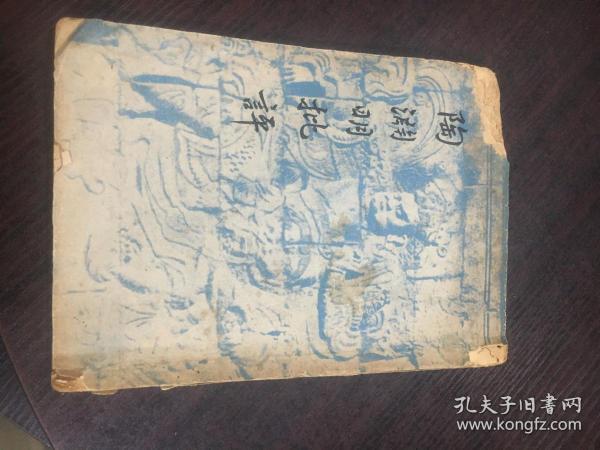 陶淵明批評
孔夫子旧書网
www.kongfz.com